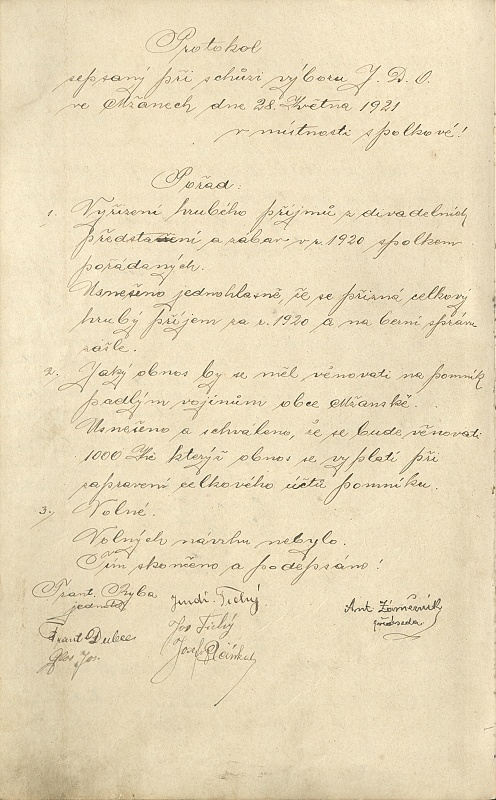 Protokol
sepsaný při schůzi výboru J. D. O.
ve Mžanech dne 28. Května 1921
v místnosti spolkové!
Pořad:
1. Vyřízení hrubého příjmů z divadelních
představení a zábav v r. 1920 spolkem
pořádaných.
Usnešeno jednohlasně, že se přizná celkový
hrubý příjem za r. 1920 a na berní správu
zašle.
2. Jaký obnos by se měl věnovati na pomník
padlým vojínům obce Mžanské.
Usnešeno a schváleno, že se bude věnovati
1000 Kč kterýž obnos se vyplatí při
zapravení celkového účtu pomníku.
3. Volné.
Volných návrhu nebylo.
Tím skončeno a podepsáno!
Frant. Ryba
jednatel
Jindř. Tichý
Ant.
předseda
Frant. Dubec
Jos Tichý
Jos.
Josef